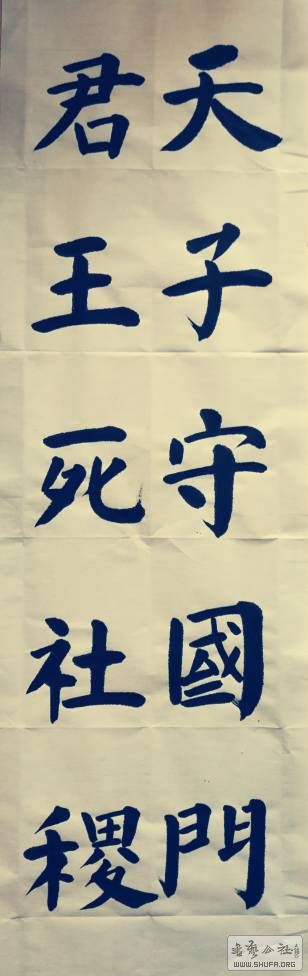 天子守國門
君王死社稷
WWW.SHUFA.ORG